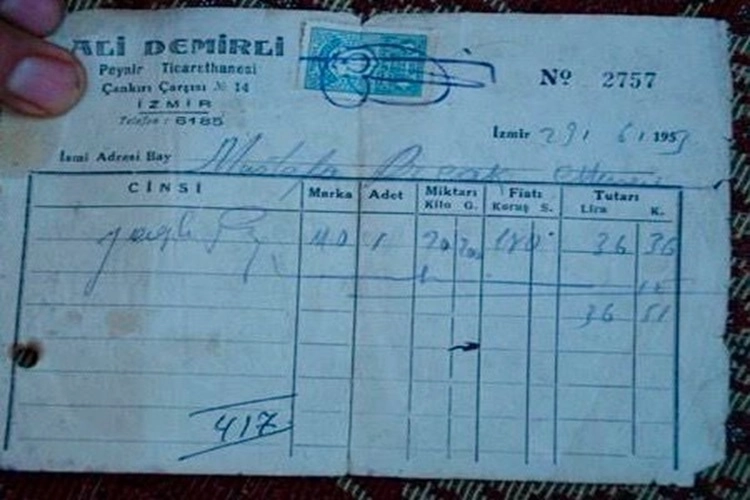 ALİ DEMİRLİ
Peynir Ticarethanesi
Çankırı Çarşısı № 14
İZMİR
Telefon : 6185
Nº 2757
İzmir 29 / 6 / 1953
İsmi Adresi Bay Mustafa
CİNSİ Marka Adet Miktarı Fiatı Tutarı
Kilo G. Kuruş S. Lira K.
1 20 200 180 36 36
36 51
417